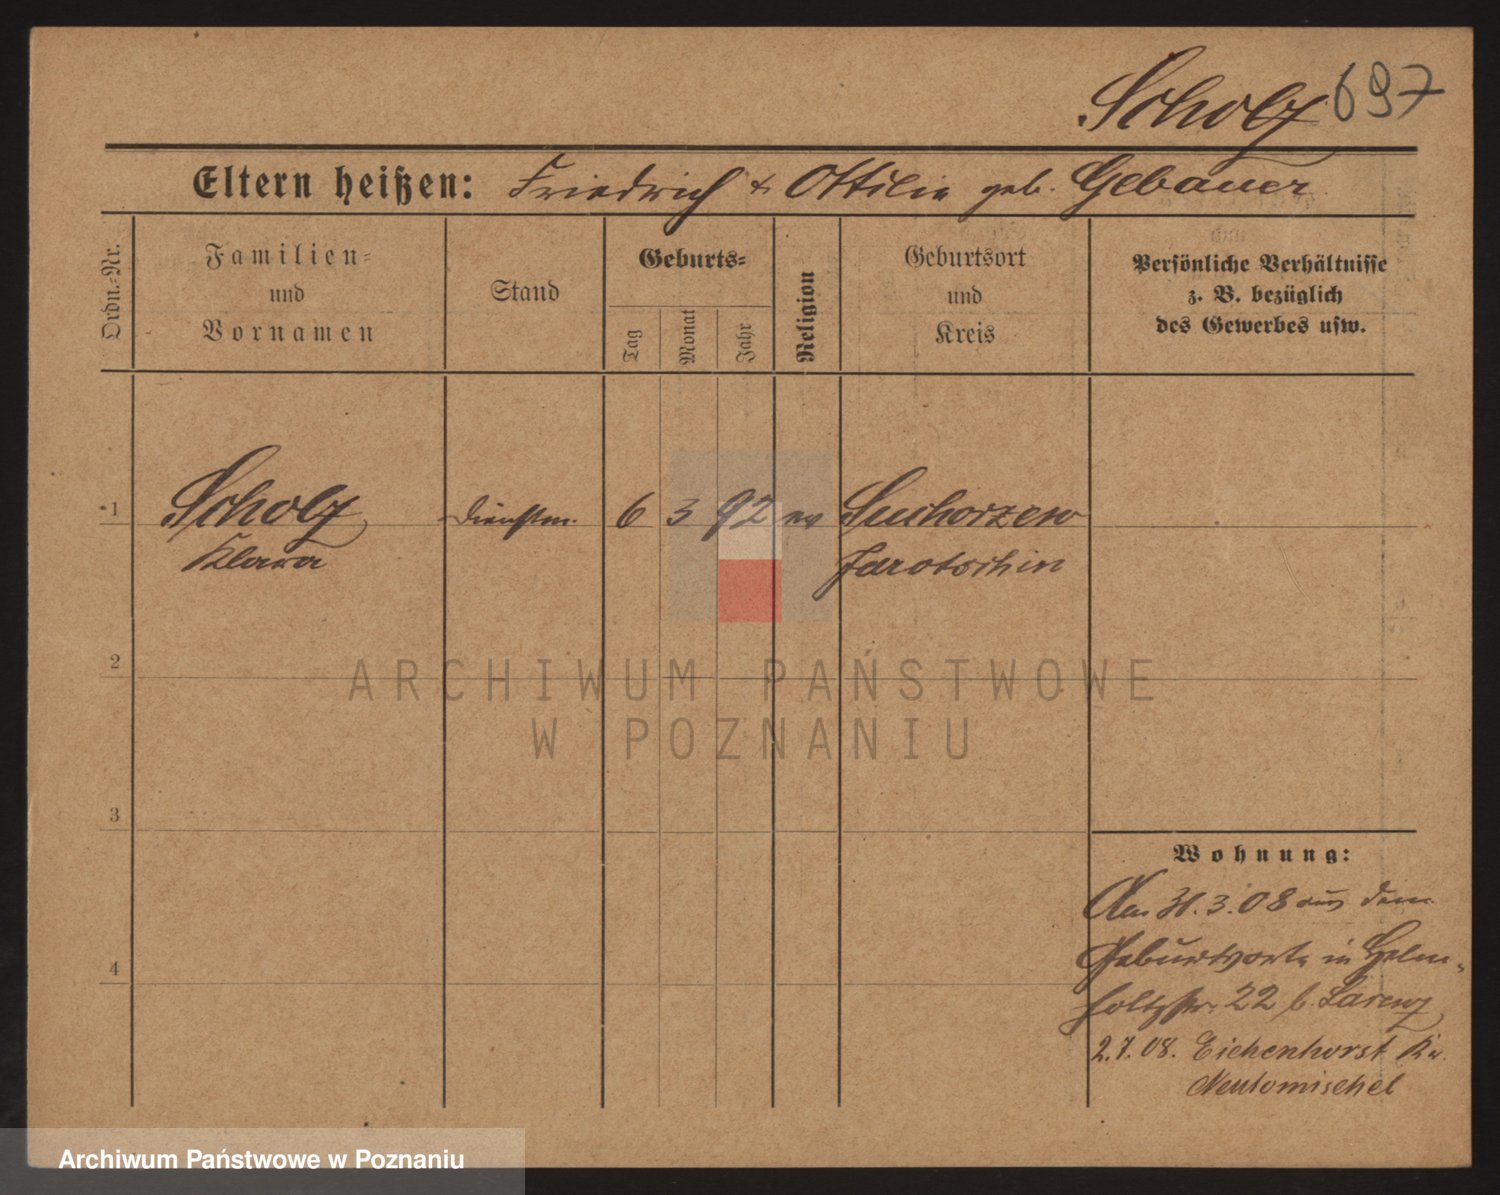 Scholz 697
Eltern heißen: Friedrich & Ottilie geb. Gebauer
Ordn.-Nr.
Familien-
und
Vornamen
Stand
Geburts-
Tag
Monat
Jahr
Religion
Geburtsort
und
Kreis
Persönliche Verhältnisse
z. B. bezüglich
des Gewerbes usw.
1 Scholz Dienstm. 6 3 92 ev Suchorzew
Klara Jarotschin
2
ARCHIWUM PAŃSTWOWE
W POZNANIU
3
Wohnung:
Am 31.3.08 aus dem
4 Geburtsorte in Helm-
holtzstr. 22 b. Larenz
2.7.08. Eichenhorst Kr.
Neutomischel
Archiwum Państwowe w Poznaniu